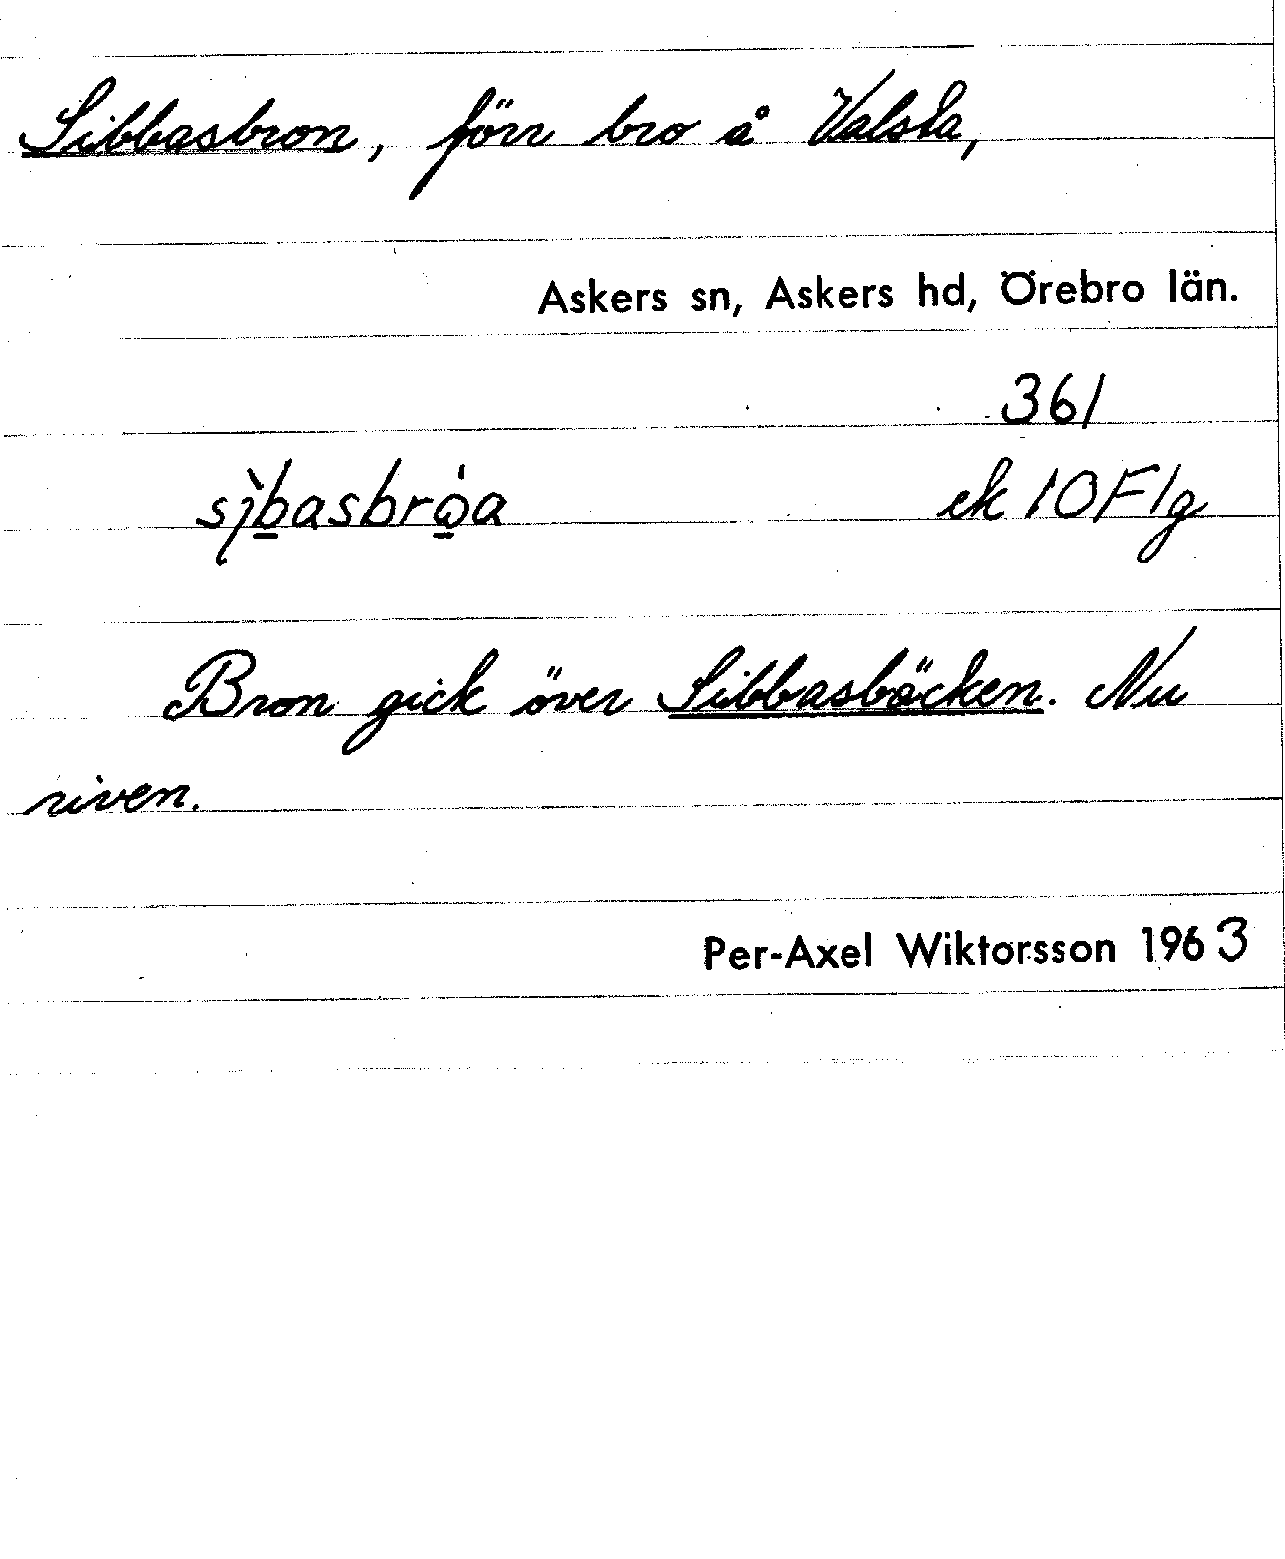 Sibbasbron, förr bro å Valsta,
Askers sn, Askers hd, Örebro län.
361
sı̀b̲asbrò̲a ek 10F1g
Bron gick över Sibbasbäcken. Nu
riven.
Per-Axel Wiktorsson 1963